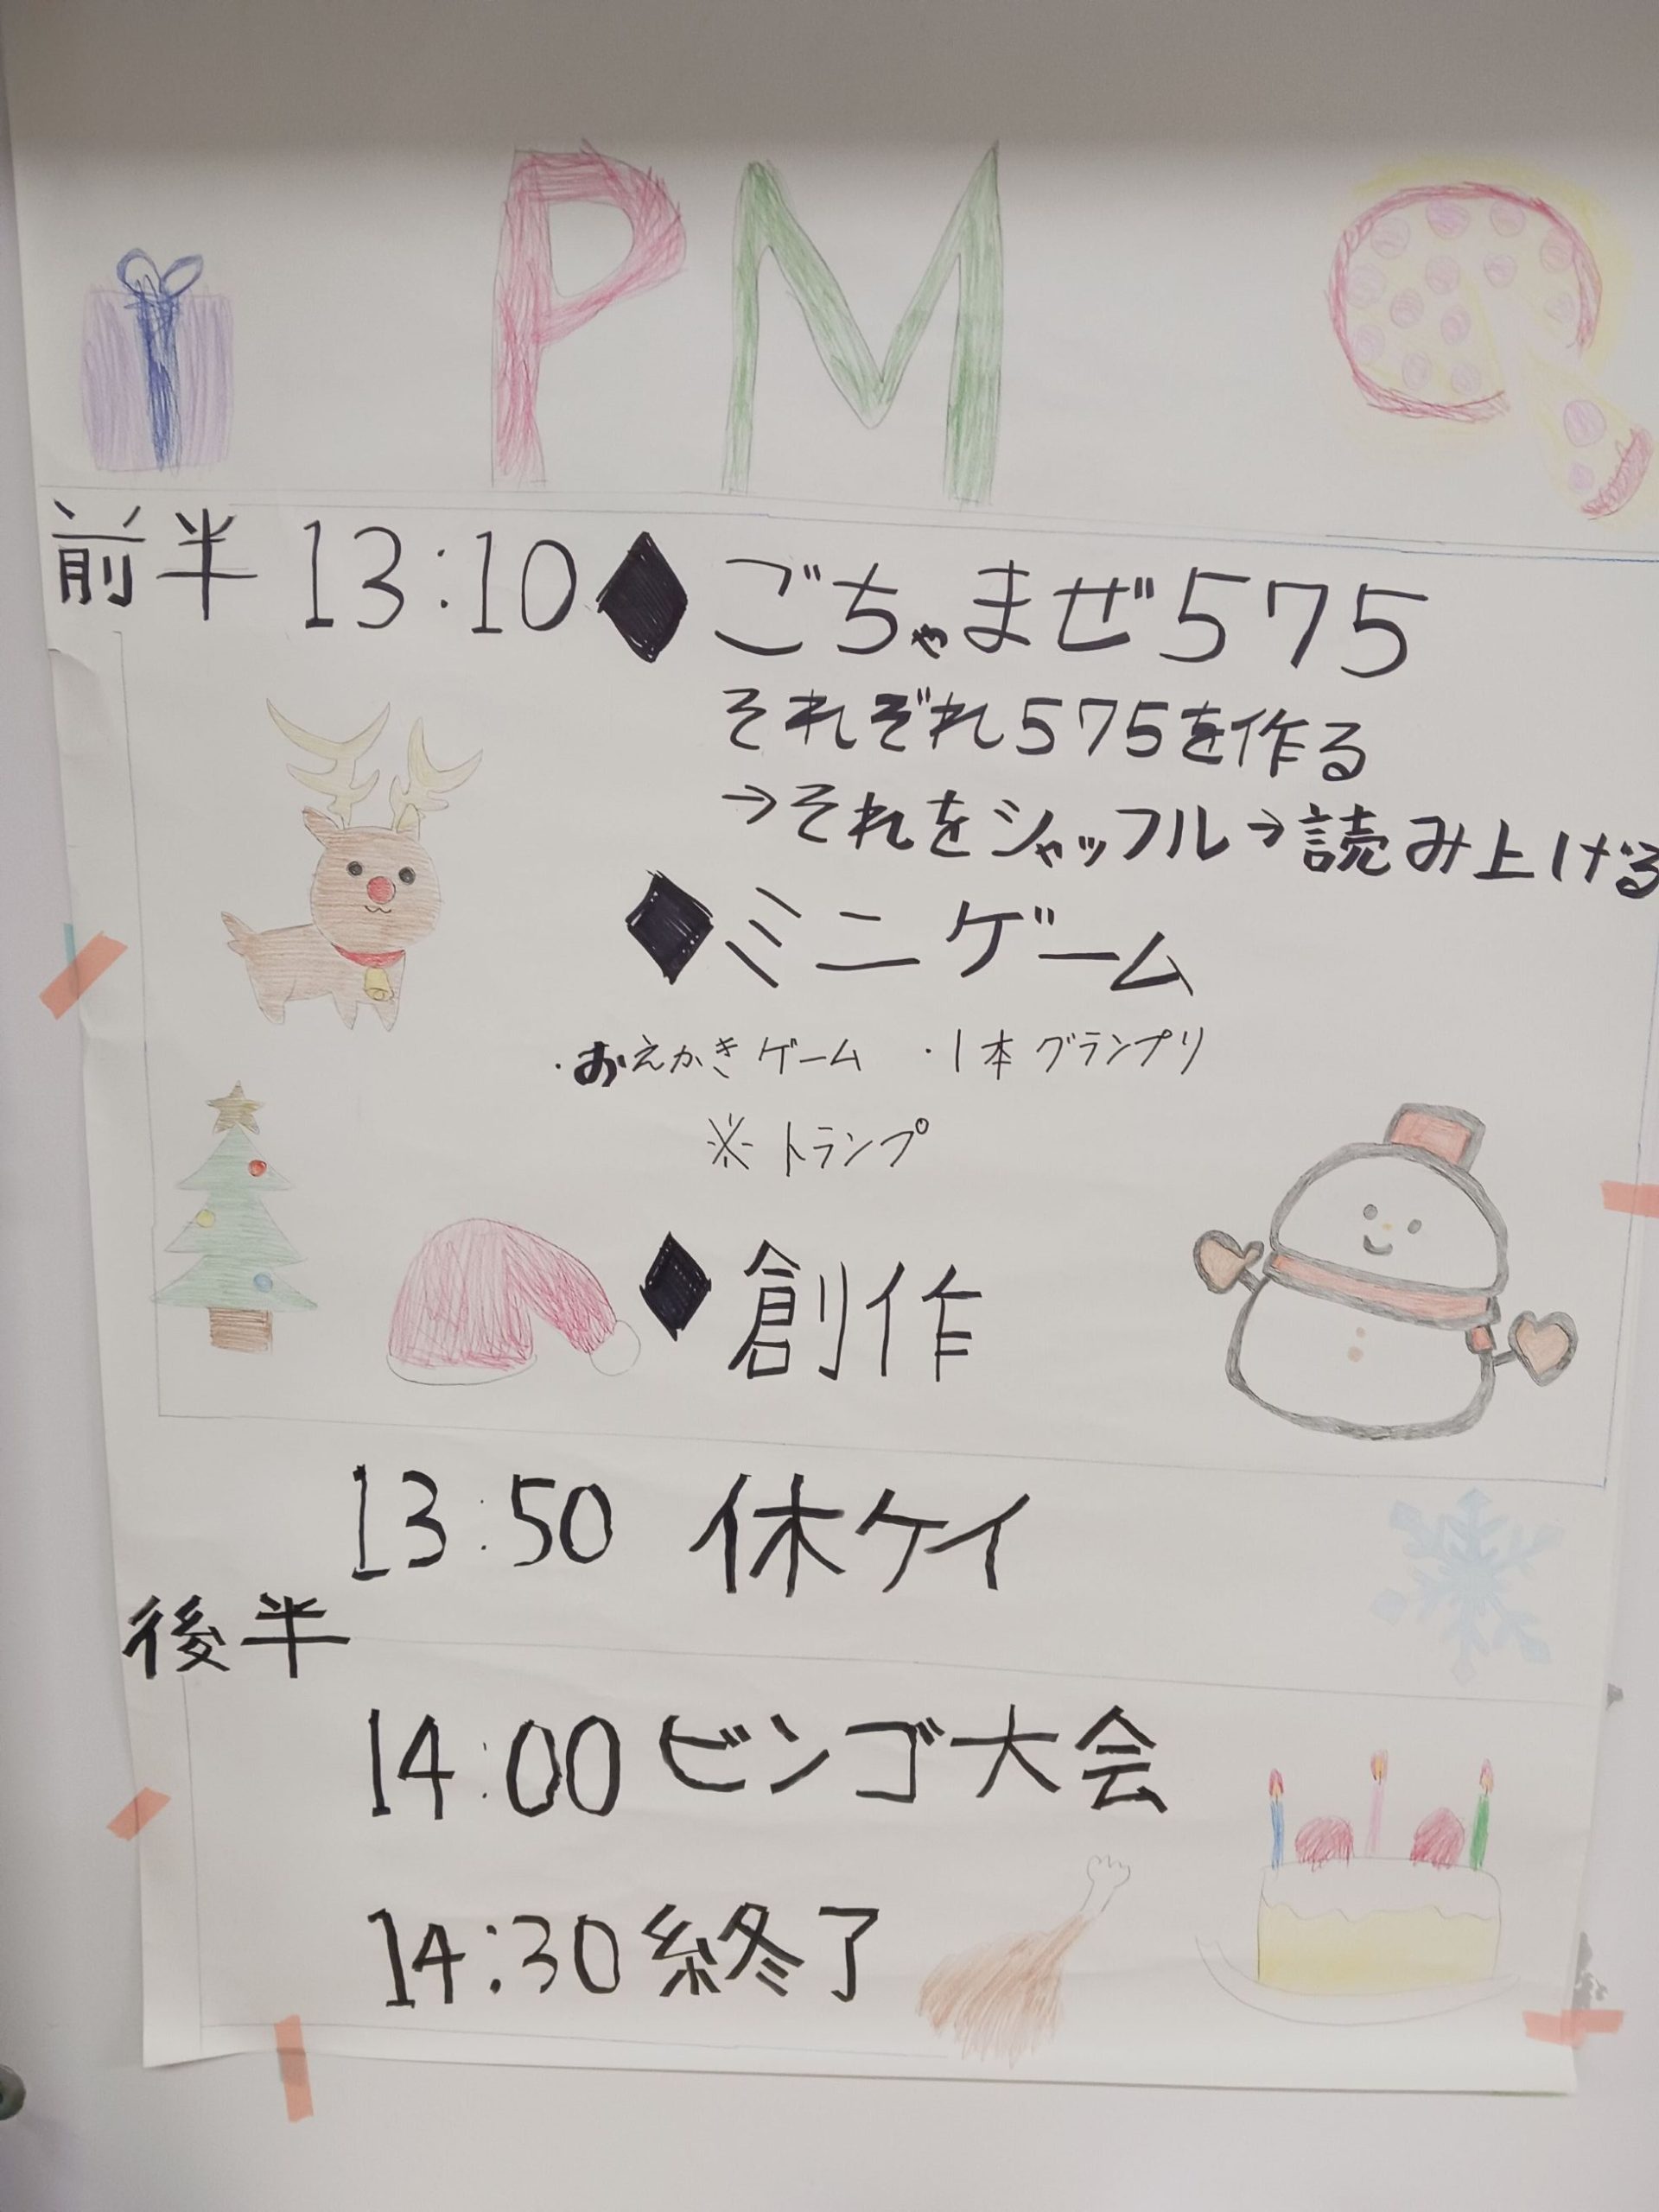 PM
前半 13:10 ◆ ごちゃまぜ575
それぞれ575を作る
→それをシャッフル→読み上げる
◆ミニゲーム
・おえかきゲーム ・1本グランプリ
※トランプ
◆創作
13:50 休ケイ
後半
14:00 ビンゴ大会
14:30 終了